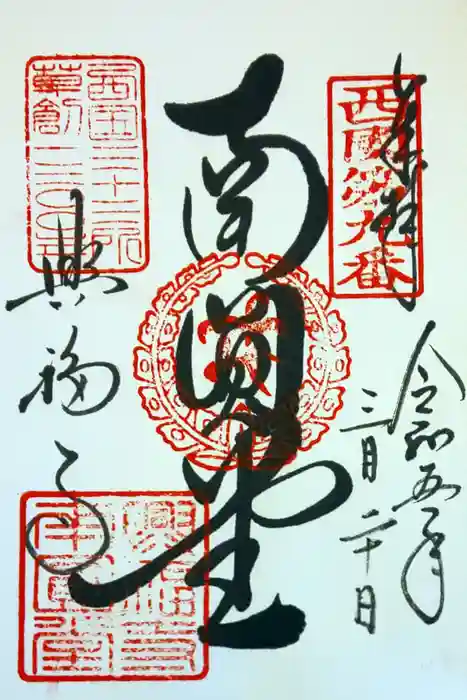 奉拝
西國第九番
令和五年
三月二十日
南圓堂
西国三十三所
草創一三〇〇年
興福寺
興福寺
南圓堂